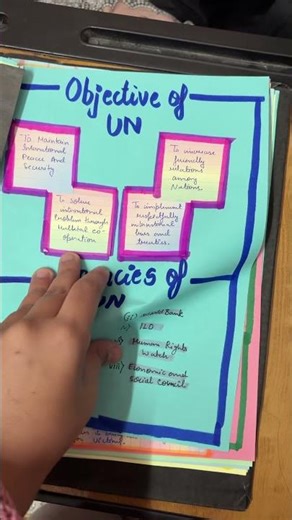 Objective of
UN
To Maintain
International
Peace And
Security
To increase
friendly
relations
among
Nations.
To solve
international
Problem through
co-
operation
To implement
respectfully
international
laws and
treaties.
ncies of
UN
Bank
ILO
Human Rights
Watch
viii) Economic and
Social Council